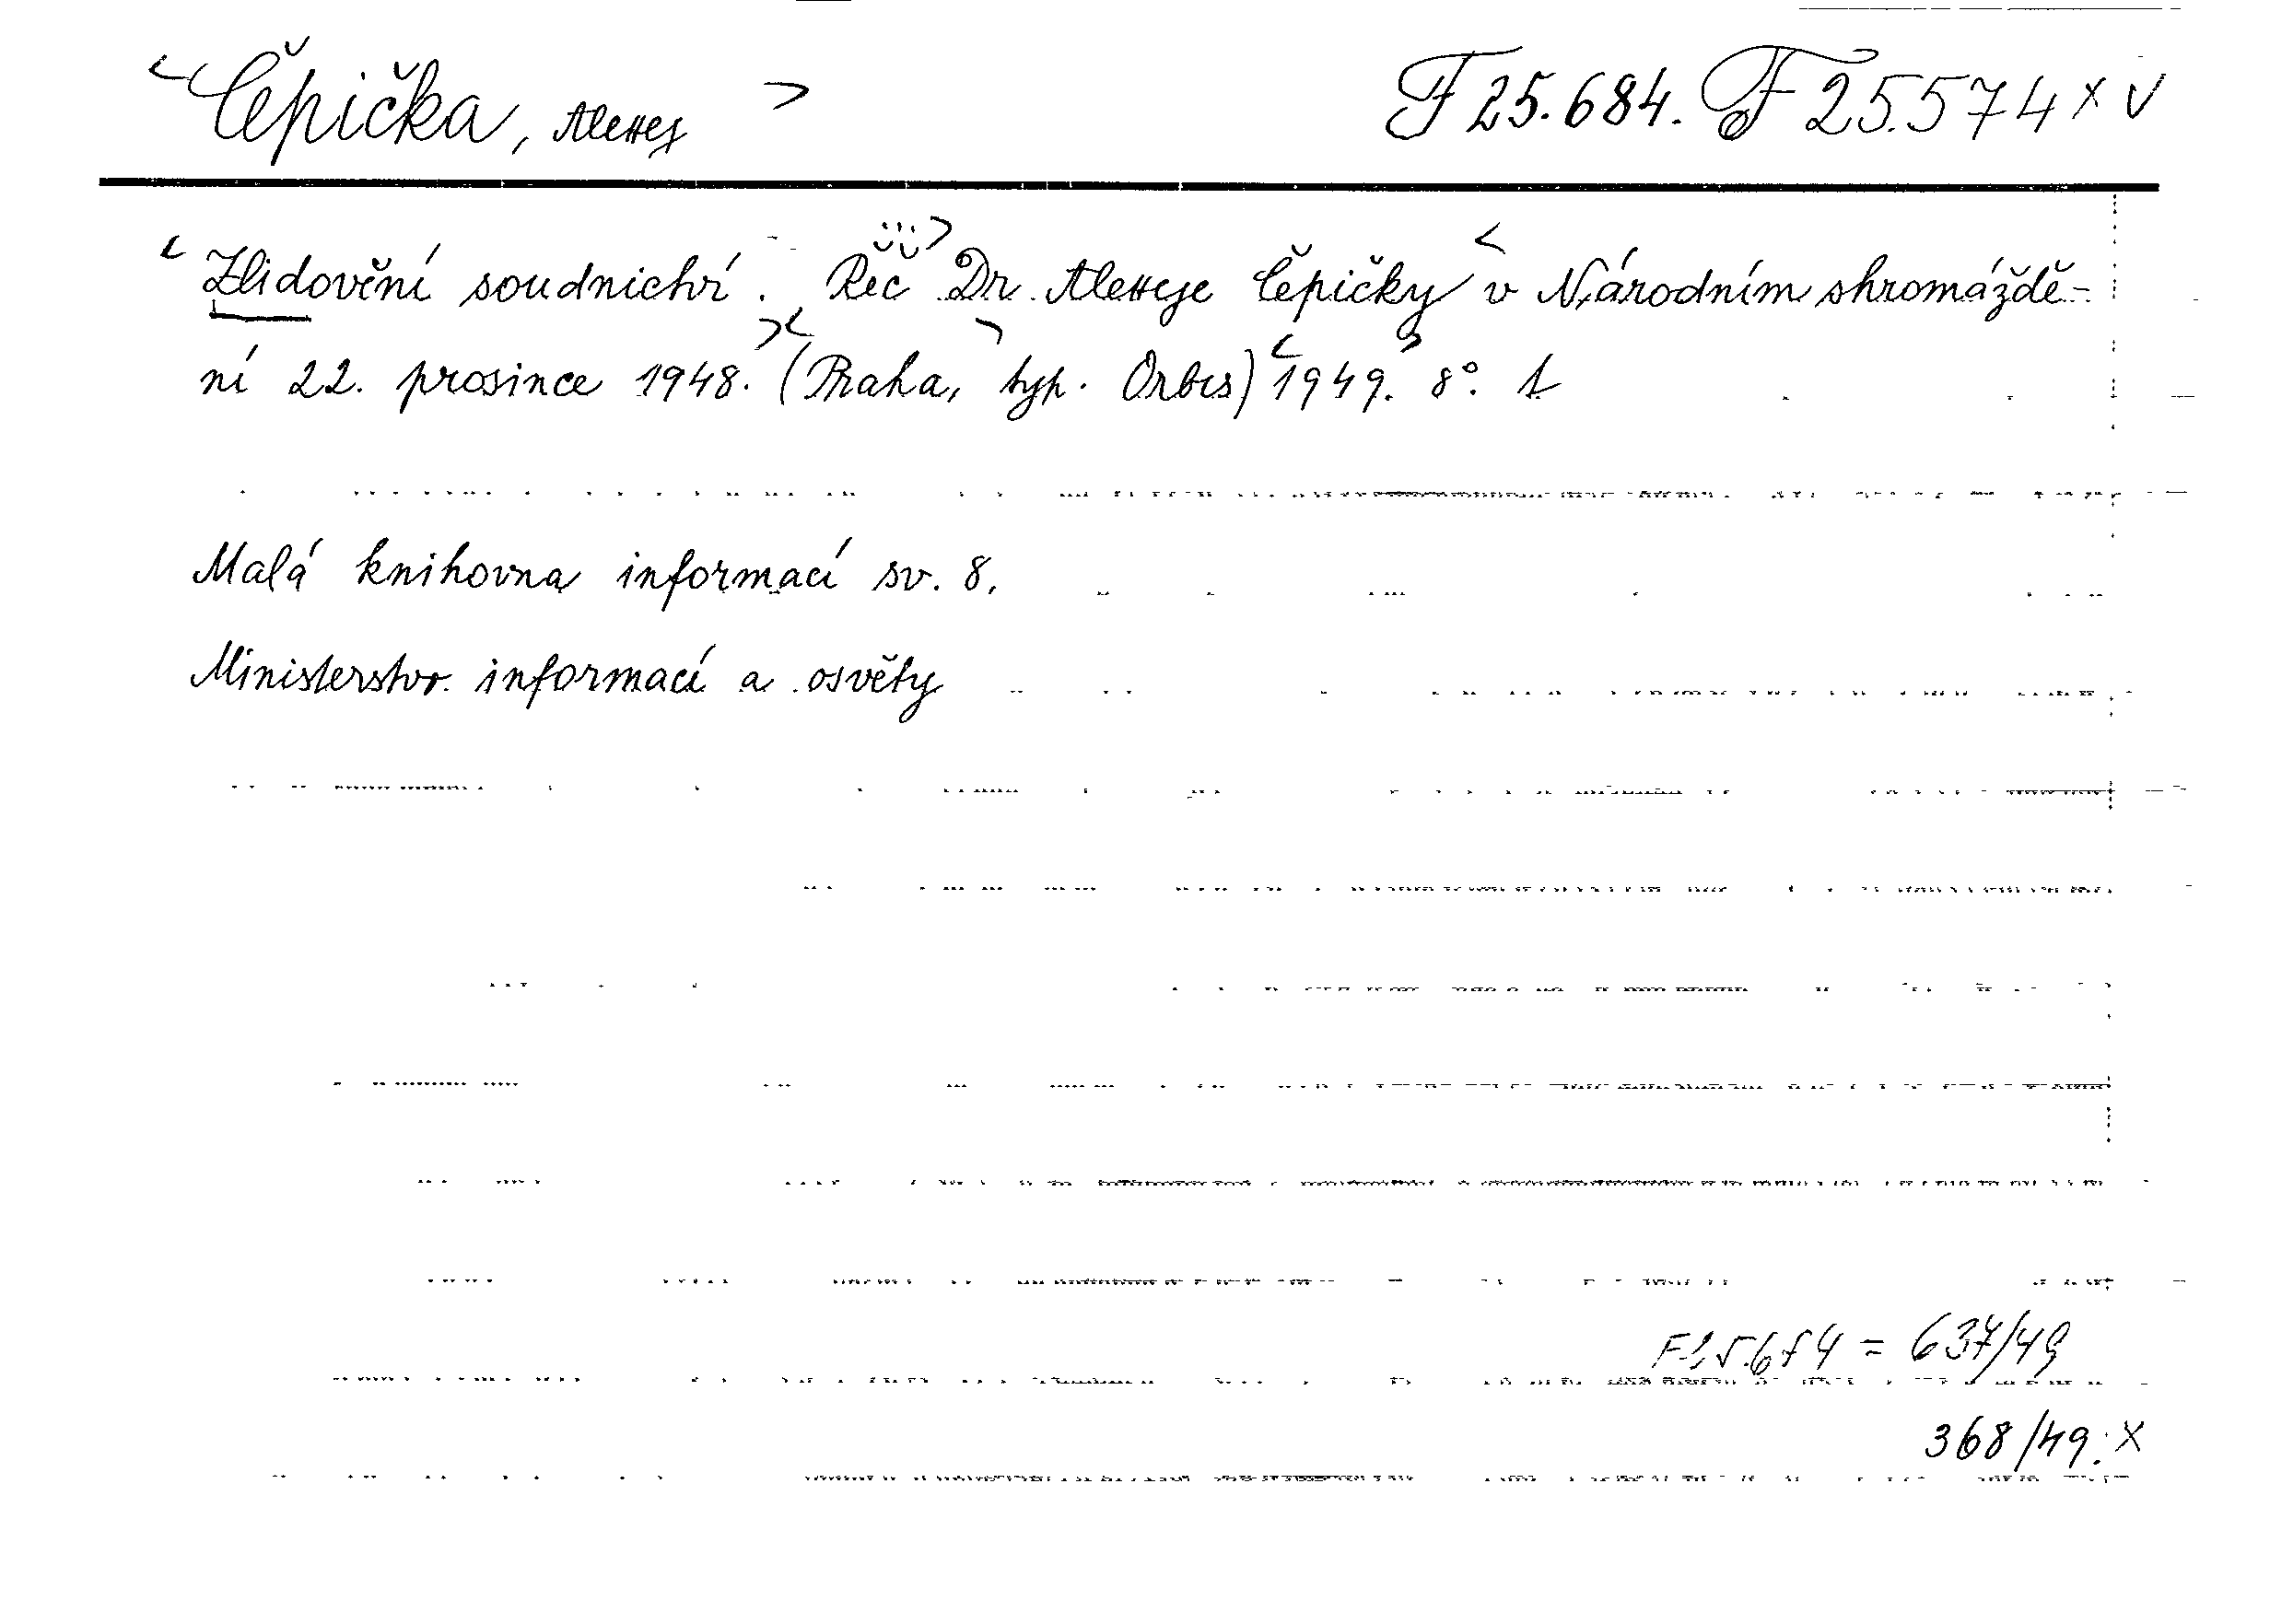 <Čepička, Alexej>
F 25.684. F 25.574 x v
<Zlidovění soudnictví. Řeč> Dr. Alexeje Čepičky <v Národním shromáždě-
ní 22. prosince 1948.> <(Praha,> typ. Orbis) <1949.> 8°. 1
Malá knihovna informací sv. 8.
Ministerstvo informací a osvěty
F 25.684 = 637/49
368/49. x